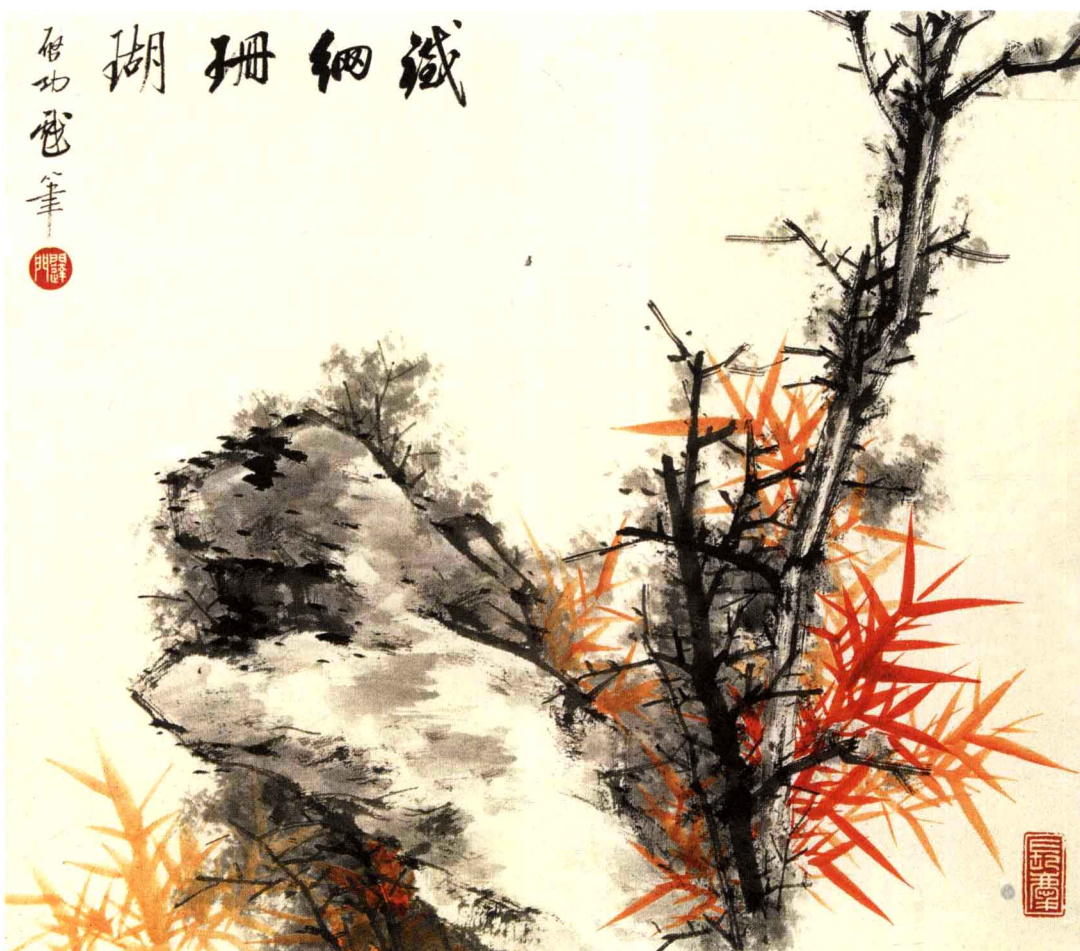 鐵網珊瑚
启功戲筆